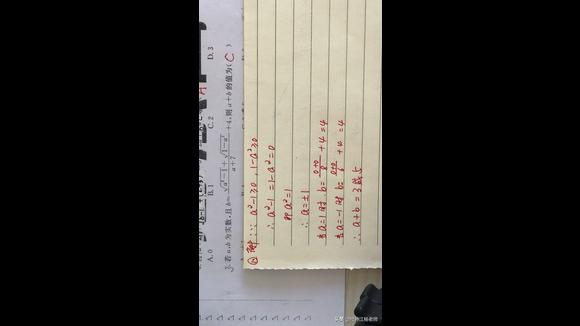 A. 0 B. 1 C. 2 D. 3
3. 若a,b为实数,且b=(√(a²-1)+√(1-a²))/(a+7)+4,则a+b的值为( C )
解:∵ a²-1≥0, 1-a²≥0
∴ a²-1=1-a²=0
即a²=1
∴ a=±1
当a=1时 b=(0+0)/8+4=4
当a=-1时 b=(0+0)/6+4=4
∴ a+b=3或5